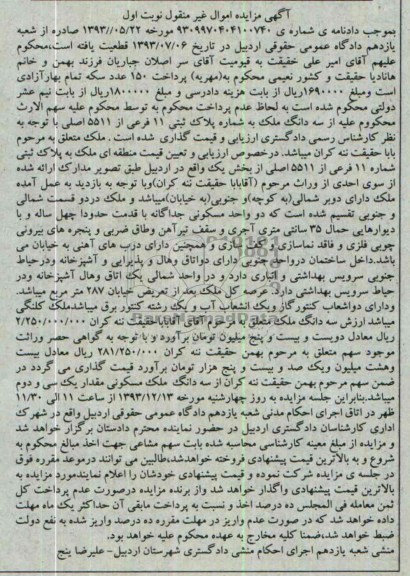 آگهی مزایده اموال غیر منقول نوبت اول
بموجب دادنامه ی شماره ی ۹۳۰۹۹۷۰۴۰۴۱۰۰۷۴۰ مورخه ۱۳۹۳/۰۵/۲۲ صادره از شعبه
یازدهم دادگاه عمومی حقوقی اردبیل در تاریخ ۱۳۹۳/۰۷/۰۶ قطعیت یافته است،محکوم
علیهم آقای امیر علی حقیقت به قیومیت آقای سر اصلان جباریان فرزند بهمن و خانم
هانادیا حقیقت و کشور نعیمی محکوم به(مهریه) پرداخت ۱۵۰ عدد سکه تمام بهارآزادی
است ومبلغ ۱۶۹۰۰۰۰ریال از بابت هزینه دادرسی و مبلغ۱۸۰۰۰۰۰ریال از بابت نیم عشر
دولتی محکوم شده است به لحاظ عدم پرداخت محکوم به توسط محکوم علیه سهم الارث
محکوم علیه از سه دانگ ملک به شماره پلاک ثبتی ۱۱ فرعی از ۵۵۱۱ اصلی با توجه به
نظر کارشناس رسمی دادگستری ارزیابی و قیمت گذاری شده است . ملک متعلق به مرحوم
بابا حقیقت ننه کران میباشد. درخصوص ارزیابی و تعیین قیمت منطقه ای ملک به پلاک ثبتی
شماره ۱۱ فرعی از ۵۵۱۱ اصلی از بخش یک واقع در اردبیل طبق تصویر مدارک ارائه شده
از سوی احدی از وراث مرحوم (آقابابا حقیقت ننه کران)وبا توجه به بازدید به عمل آمده
ملک دارای دوبر شمالی(به کوچه)و جنوبی(به خیابان)میباشد و ملک دردو قسمت شمالی
و جنوبی تقسیم شده است که دو واحد مسکونی جداگانه با قدمت حدودا چهل ساله و با
دیوارهایی حمال ۳۵ سانتی متری آجری و سقف تیرآهن وطاق ضربی و پنجره های بیرونی
چوبی فلزی و فاقد نماسازی و کف سازی و همچنین دارای درب های آهنی به خیابان می
باشد.داخل ساختمان درواحد جنوبی دارای دواتاق وهال و پذیرایی و آشپزخانه ودرحیاط
جنوبی سرویس بهداشتی و انباری دارد و در واحد شمالی یک اتاق وهال آشپزخانه ودر
حیاط سرویس بهداشتی دارد. عرصه کل ملک بعد از تعریض خیابان ۲۸۷ متر مربع میباشد.
ودارای دواشعاب کنتورگاز ویک انشعاب آب و یک رشته کنتور برق میباشدملک کلنگی
میباشد ارزش سه دانگ ملک متعلق به مرحوم آقای آقاباباحقیقت ننه کران ۲/۲۵۰/۰۰۰/۰۰۰
ریال معادل دویست و بیست و پنج میلیون تومان برآورد و با توجه به گواهی حصر وراثت
موجود سهم متعلق به مرحوم بهمن حقیقت ننه کران ۲۸۱/۲۵۰/۰۰۰ ریال معادل بیست
وهشت میلیون ویک صد و بیست و پنج هزار تومان برآورد قیمت گذاری می گردد در
ضمن سهم مرحوم بهمن حقیقت ننه کران از سه دانگ ملک مسکونی مقدار یک سی و دوم
میباشد.بنابراین جلسه مزایده به روز چهارشنبه مورخه ۱۳۹۳/۱۲/۱۳ از ساعت ۱۱ الی ۱۱/۳۰
ظهر در اتاق اجرای احکام مدنی شعبه یازدهم دادگاه عمومی حقوقی اردبیل واقع در شهرک
اداری کارشناسان دادگستری اردبیل در حضور نماینده محترم دادستان برگزار خواهد شد
و مزایده از مبلغ معینه کارشناسی محاسبه شده بابت سهم مشاعی جهت اخذ مبالغ محکوم به
شروع و به بالاترین قیمت پیشنهادی فروخته خواهدشد،طالبین می توانند درموعد مقرره فوق
در جلسه ی مزایده شرکت نموده و قیمت پیشنهادی خودشان را اعلام نمایندمورد مزایده به
بالاترین قیمت پیشنهادی واگذار خواهد شد واز برنده مزایده درصورت عدم پرداخت کل
ثمن معامله فی المجلس ده درصد اخذ و نسبت به پرداخت مابقی آن حداکثر یک ماه مهلت
داده خواهد شد که در صورت عدم واریز در مهلت مقرره ده درصد واریز شده به نفع دولت
ضبط خواهد شد،ضمنا کلیه مخارج به عهده محکوم علیه خواهد بود.
منشی شعبه یازدهم اجرای احکام منشی دادگستری شهرستان اردبیل- علیرضا پنج